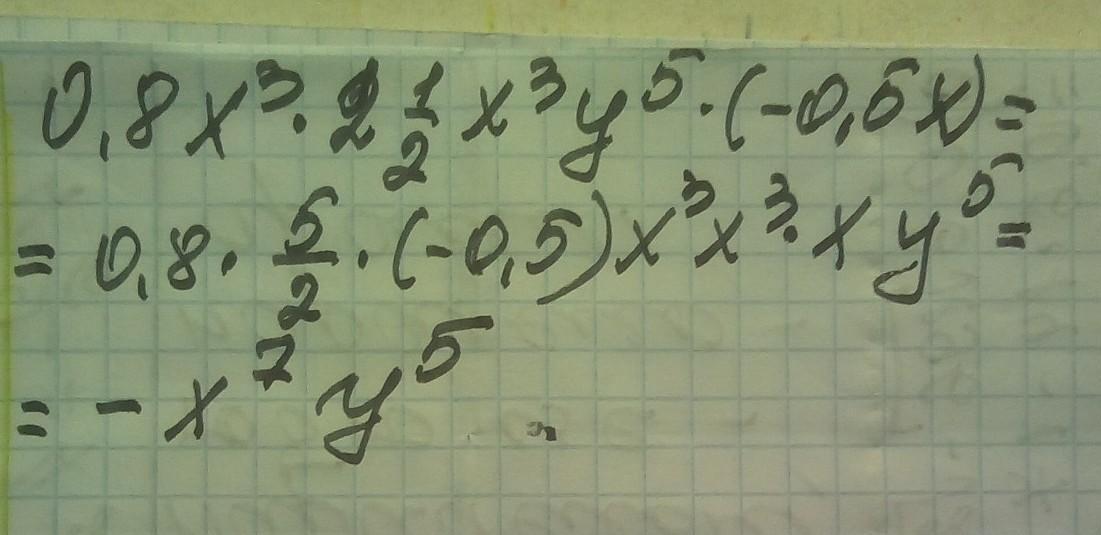 0,8x³·2½x³y⁵·(-0,5x)=
=0,8·5/2·(-0,5)x³x³·xy⁵=
=-x⁷y⁵